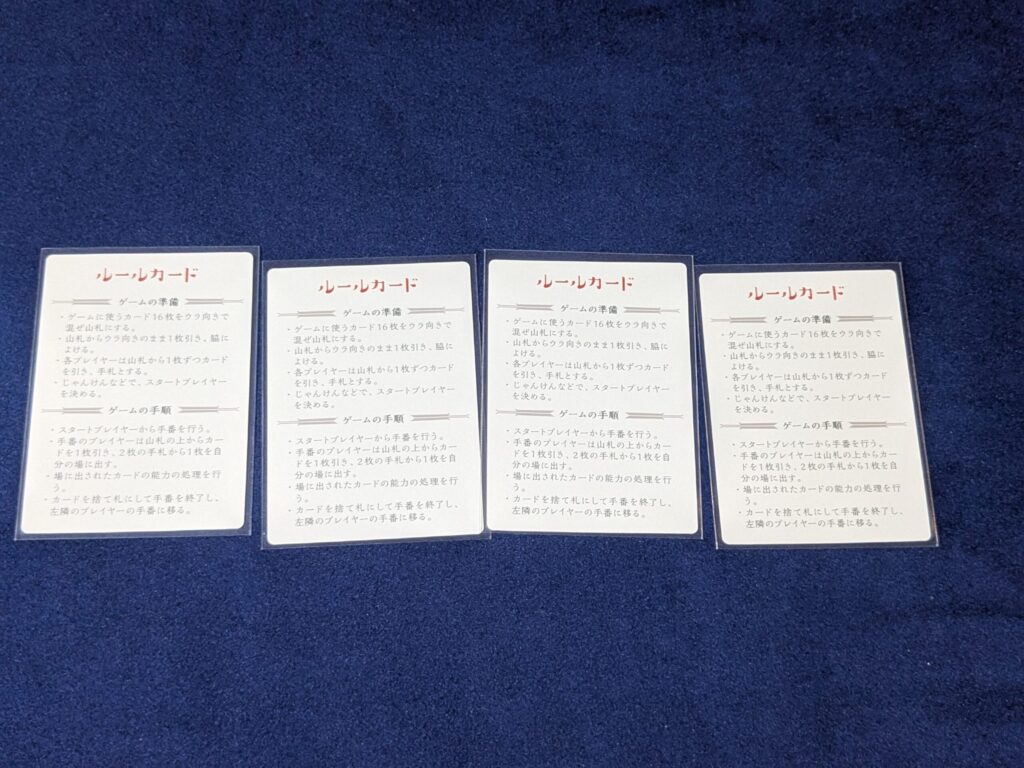 ルールカード
ゲームの準備
・ゲームに使うカード16枚をウラ向きで
混ぜ山札にする。
・山札からウラ向きのまま1枚引き、脇に
よける。
・各プレイヤーは山札から1枚ずつカード
を引き、手札とする。
・じゃんけんなどで、スタートプレイヤー
を決める。
ゲームの手順
・スタートプレイヤーから手番を行う。
・手番のプレイヤーは山札の上からカー
ドを1枚引き、2枚の手札から1枚を自
分の場に出す。
・場に出されたカードの能力の処理を行
う。
・カードを捨て札にして手番を終了し、
左隣のプレイヤーの手番に移る。
ルールカード
ゲームの準備
・ゲームに使うカード16枚をウラ向きで
混ぜ山札にする。
・山札からウラ向きのまま1枚引き、脇に
よける。
・各プレイヤーは山札から1枚ずつカード
を引き、手札とする。
・じゃんけんなどで、スタートプレイヤー
を決める。
ゲームの手順
・スタートプレイヤーから手番を行う。
・手番のプレイヤーは山札の上からカー
ドを1枚引き、2枚の手札から1枚を自
分の場に出す。
・場に出されたカードの能力の処理を行
う。
・カードを捨て札にして手番を終了し、
左隣のプレイヤーの手番に移る。
ルールカード
ゲームの準備
・ゲームに使うカード16枚をウラ向きで
混ぜ山札にする。
・山札からウラ向きのまま1枚引き、脇に
よける。
・各プレイヤーは山札から1枚ずつカード
を引き、手札とする。
・じゃんけんなどで、スタートプレイヤー
を決める。
ゲームの手順
・スタートプレイヤーから手番を行う。
・手番のプレイヤーは山札の上からカー
ドを1枚引き、2枚の手札から1枚を自
分の場に出す。
・場に出されたカードの能力の処理を行
う。
・カードを捨て札にして手番を終了し、
左隣のプレイヤーの手番に移る。
ルールカード
ゲームの準備
・ゲームに使うカード16枚をウラ向きで
混ぜ山札にする。
・山札からウラ向きのまま1枚引き、脇に
よける。
・各プレイヤーは山札から1枚ずつカード
を引き、手札とする。
・じゃんけんなどで、スタートプレイヤー
を決める。
ゲームの手順
・スタートプレイヤーから手番を行う。
・手番のプレイヤーは山札の上からカー
ドを1枚引き、2枚の手札から1枚を自
分の場に出す。
・場に出されたカードの能力の処理を行
う。
・カードを捨て札にして手番を終了し、
左隣のプレイヤーの手番に移る。